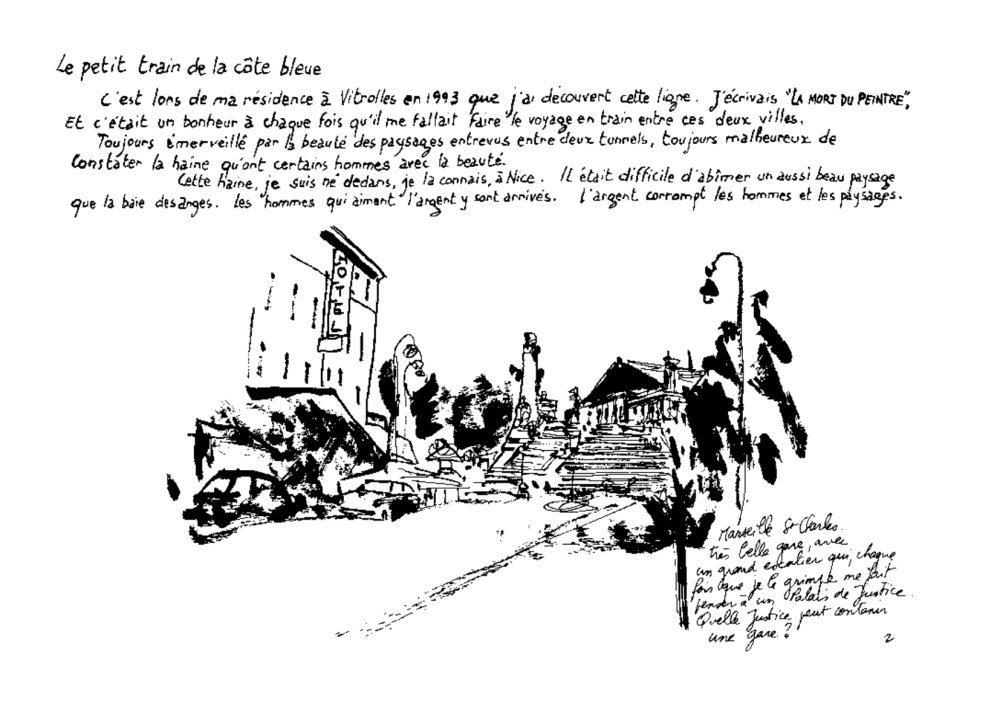 Le petit train de la côte bleue
C'est lors de ma résidence à Vitrolles en 1993 que j'ai découvert cette ligne. J'écrivais "LA MORT DU PEINTRE",
Et c'était un bonheur à chaque fois qu'il me fallait faire le voyage en train entre ces deux villes.
Toujours émerveillé par la beauté des paysages entrevus entre deux tunnels, toujours malheureux de
constater la haine qu'ont certains hommes avec la beauté.
Cette haine, je suis né dedans, je la connais, à Nice. Il était difficile d'abîmer un aussi beau paysage
que la baie des anges. Les hommes qui aiment l'argent y sont arrivés. L'argent corrompt les hommes et les paysages.
HOTEL
Marseille St Charles.
très belle gare, avec
un grand escalier qui, chaque
fois que je le grimpe me fait
penser à un Palais de Justice.
Quelle Justice peut contenir
une gare?
2